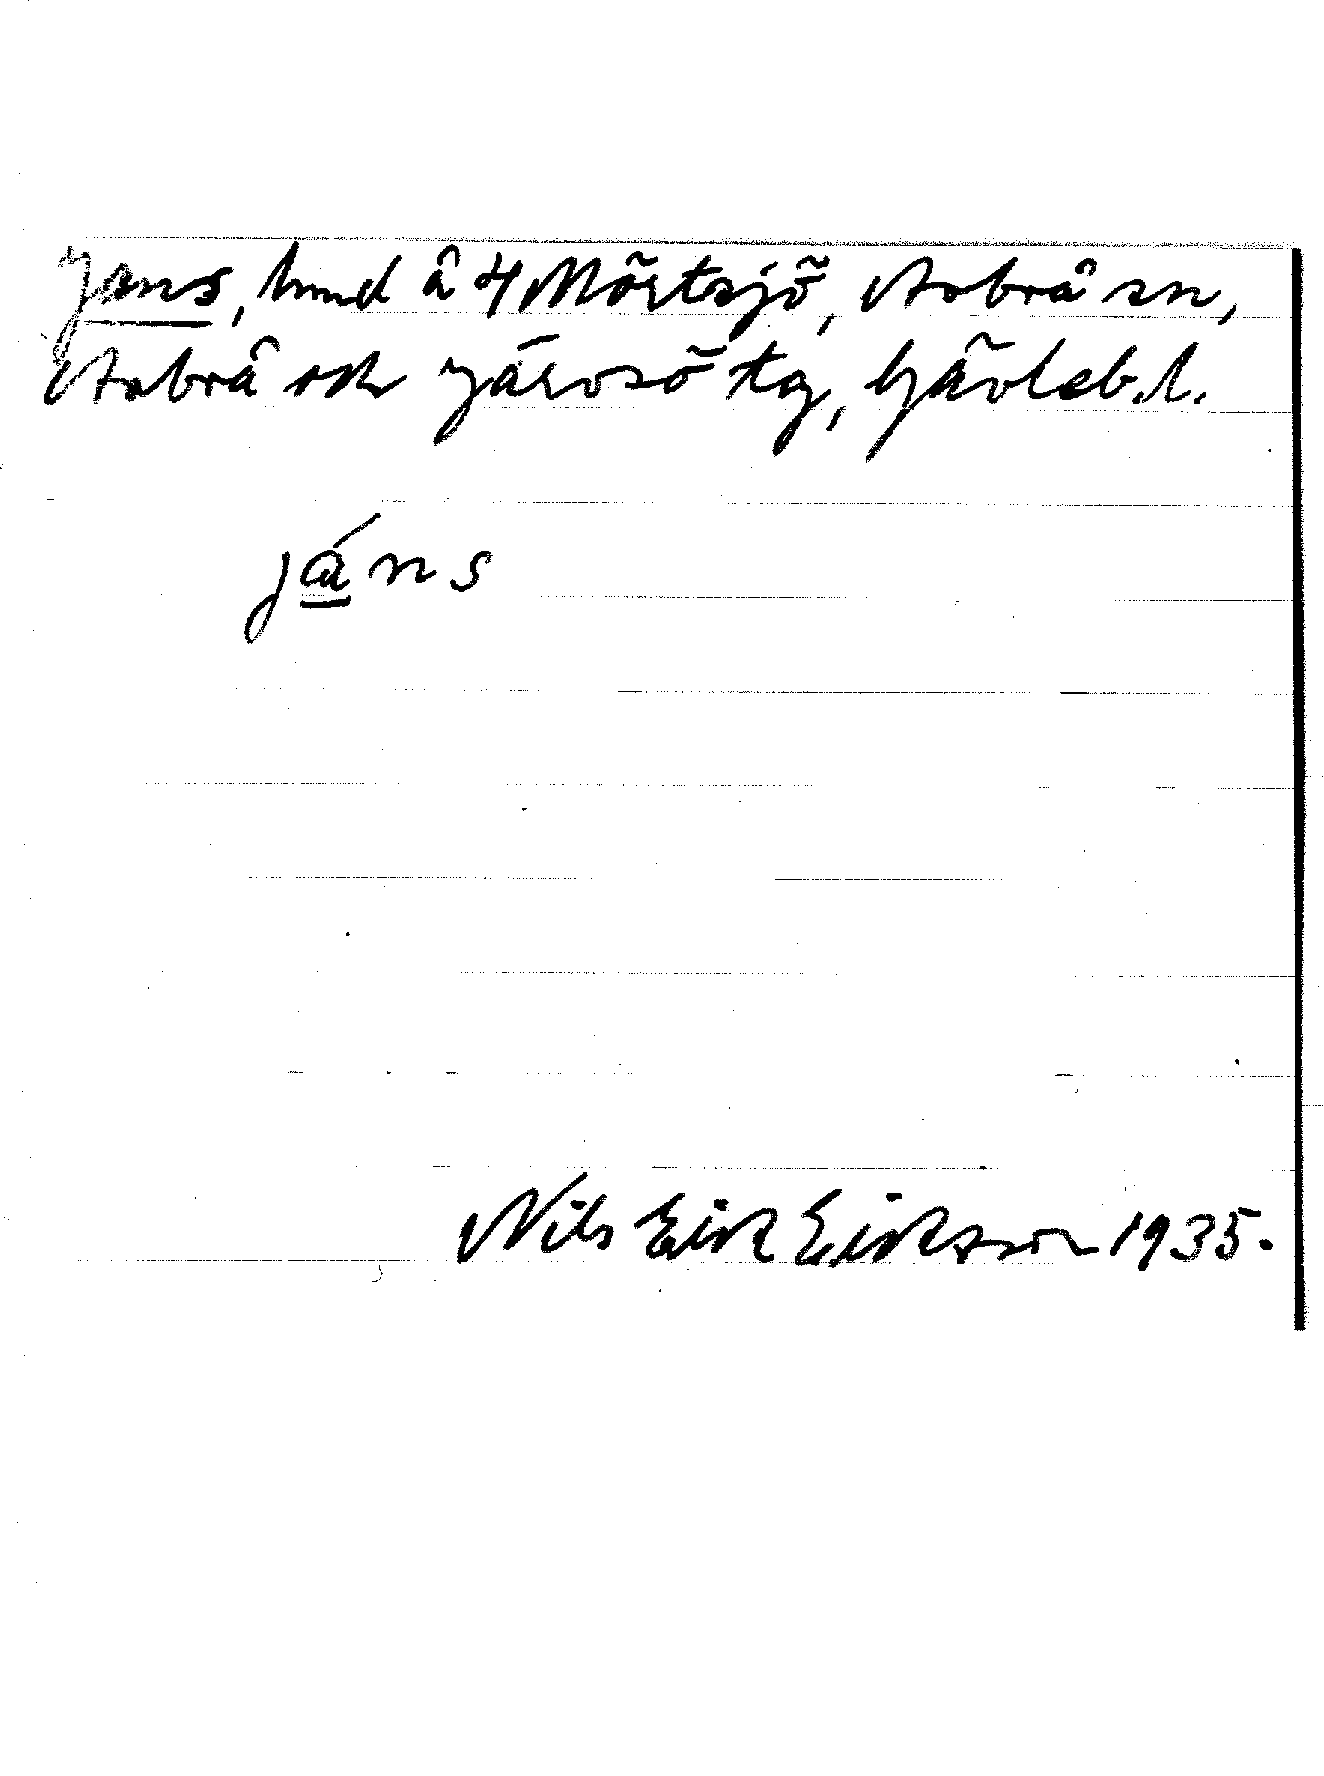 Jans, hmd å 4 Mörtsjö, Arbrå sn,
Arbrå och Järvsö tg, Gävleb.l.
jáns
Nils Eirk Eirksson 1935.